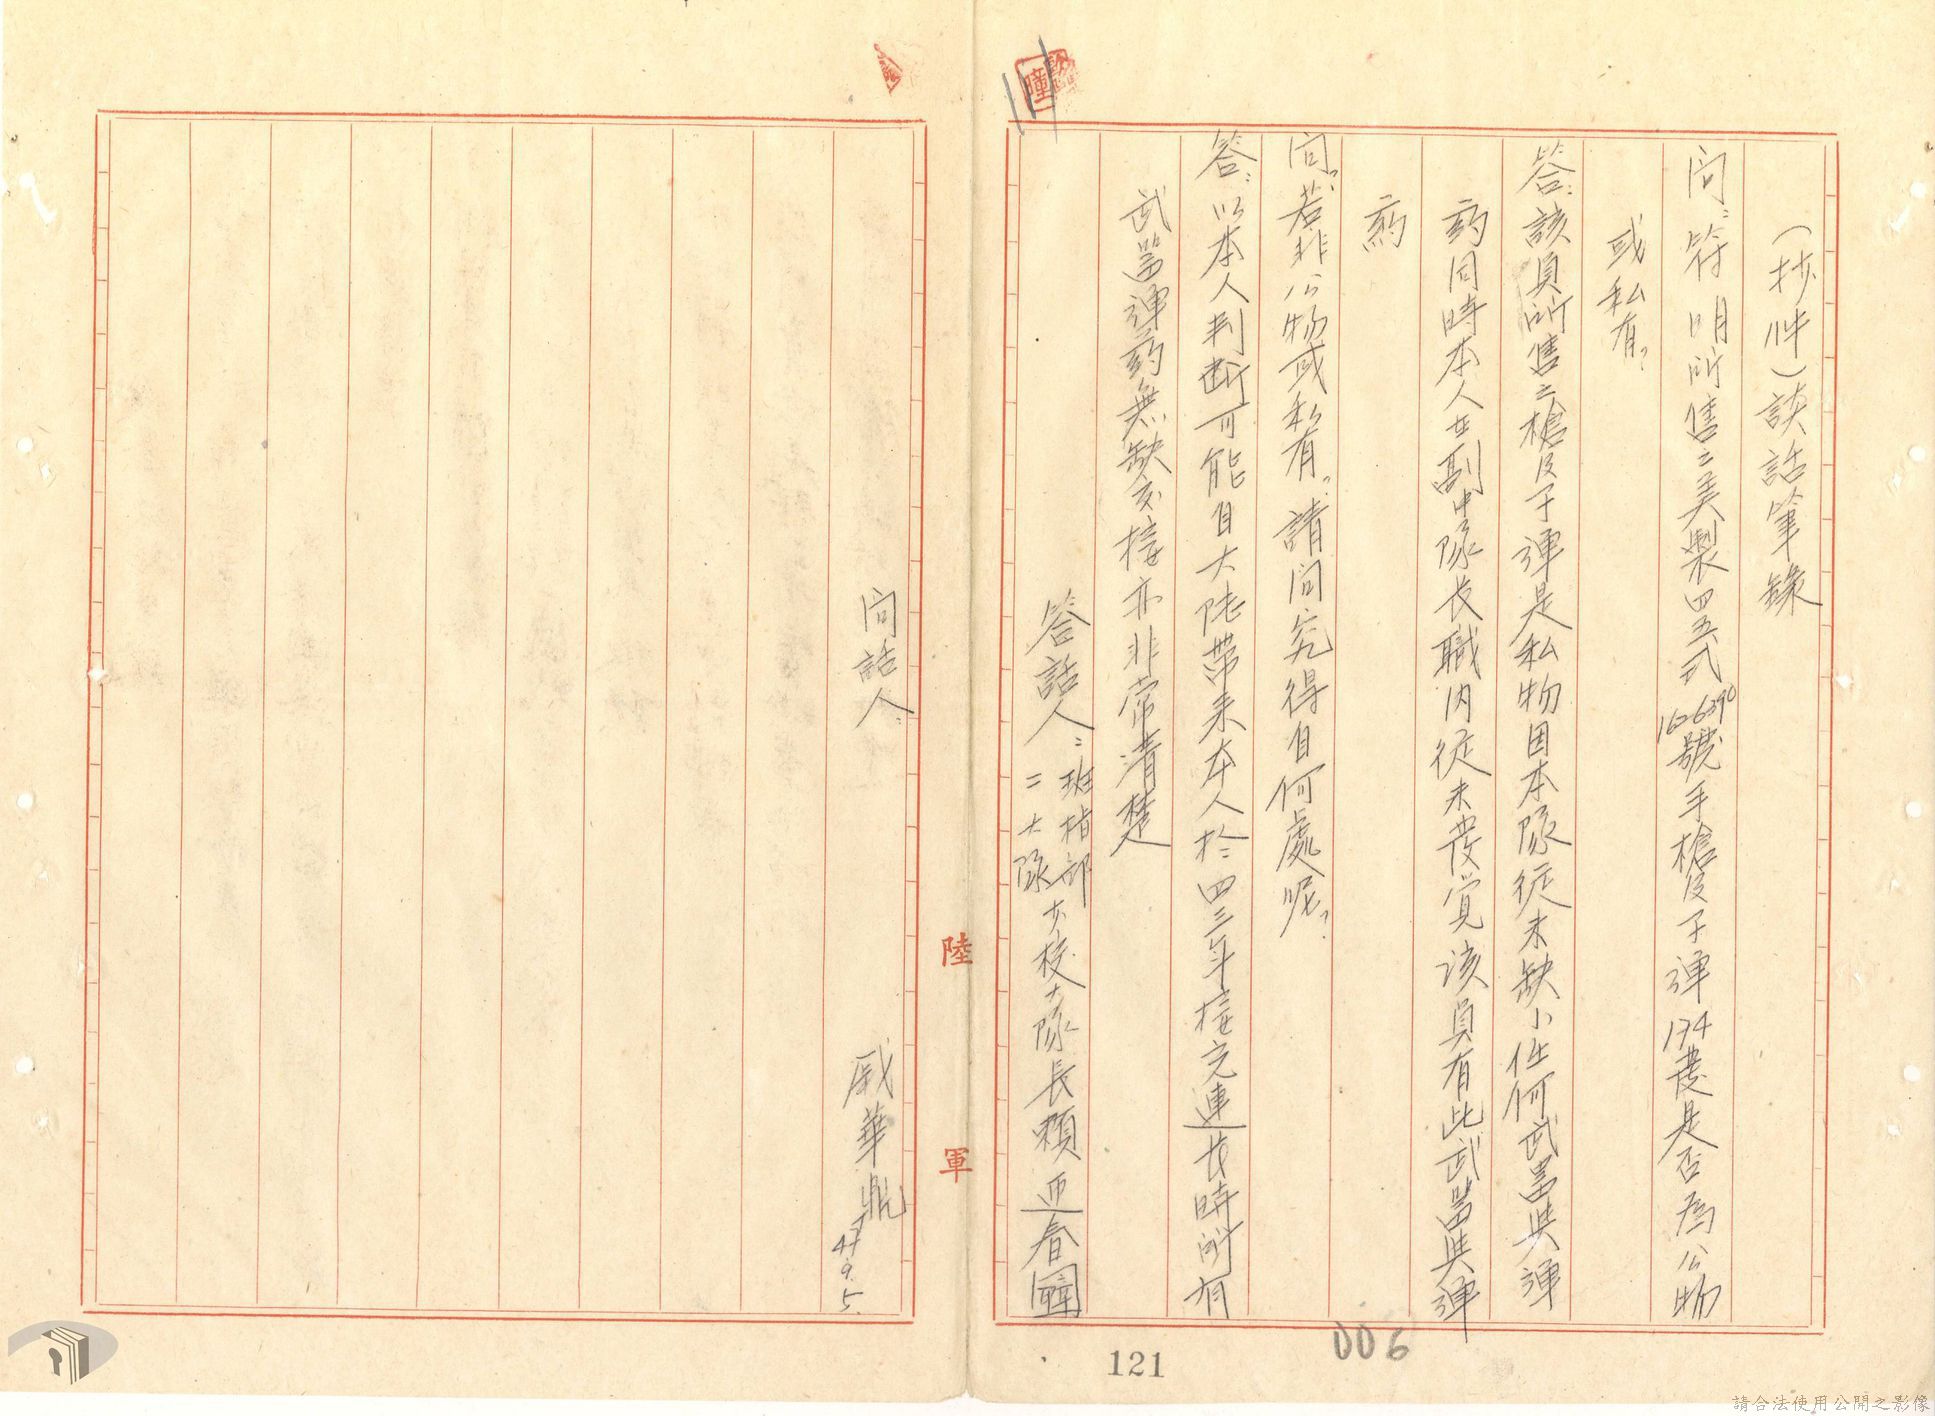 (抄件)談話筆錄
問：符明所售之美製四五式1626290號手槍及子彈174發是否為公物
或私有？
答：該員所售之槍及子彈是私物因本隊從未缺小任何武器與彈
药同時本人在副中隊長職內從未發覚該員有此武器與彈
药
問：若非公物或私有？請问究得自何處呢？
答：以本人判断可能自大陆带来本人於四三年接充連长時所有
武器弹药無缺交接亦非常清楚
答話人：班指部二大隊少校大隊長賴迎春
問話人：
戚華鼎
47.9.5.
陸軍
121
006
請合法使用公開之影像